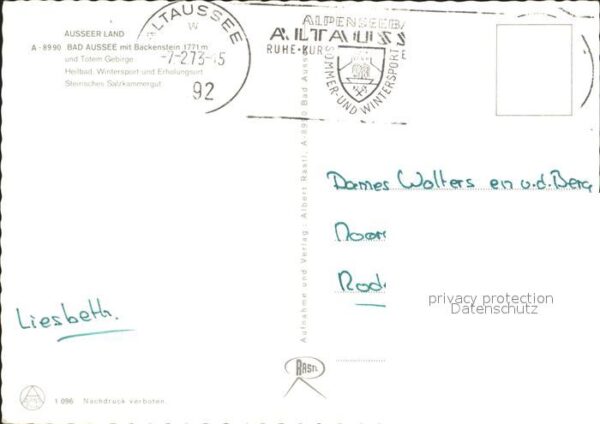 AUSSEER LAND
A - 8990 BAD AUSSEE mit Backenstein 1771 m
und Totem Gebirge
Heilbad, Wintersport und Erholungsort
Steirisches Salzkammergut
ALTAUSSEE
W
-7-2 73-15
92
ALPENSEEBA
ALTAUSS
RUHE-KUR
SOMMER-UND WINTERSPORT
Aufnahme und Verlag: Albert Rastl, A-8990 Bad Aussee
Dames Wolters en v.d. Berg
Noor
Rod
privacy protection
Datenschutz
Liesbeth.
RASTL
1 096 Nachdruck verboten.